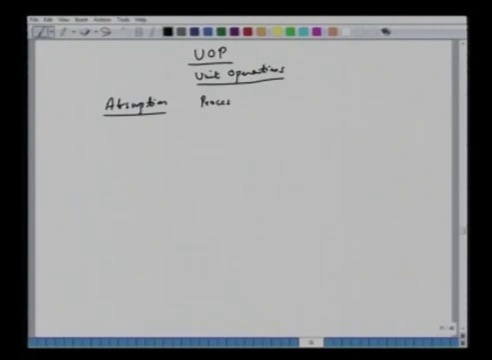 File Edit View Insert Actions Tools Help
UOP
Unit Operations
Absorption Proces